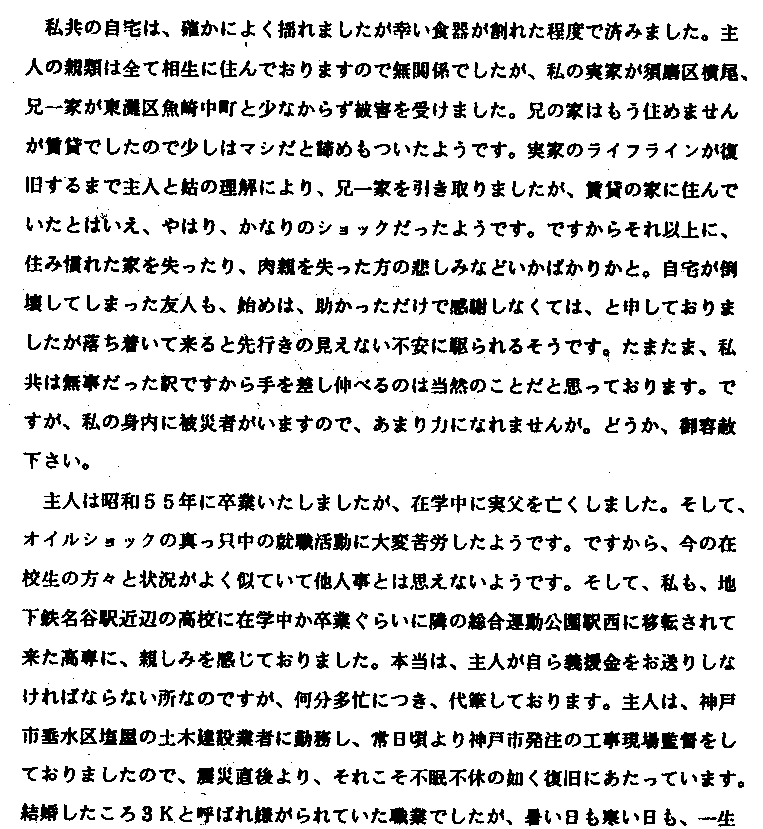 私共の自宅は、確かによく揺れましたが幸い食器が割れた程度で済みました。主
人の親類は全て相生に住んでおりますので無関係でしたが、私の実家が須磨区横尾、
兄一家が東灘区魚崎中町と少なからず被害を受けました。兄の家はもう住めません
が賃貸でしたので少しはマシだと諦めもついたようです。実家のライフラインが復
旧するまで主人と姑の理解により、兄一家を引き取りましたが、賃貸の家に住んで
いたとはいえ、やはり、かなりのショックだったようです。ですからそれ以上に、
住み慣れた家を失ったり、肉親を失った方の悲しみなどいかばかりかと。自宅が倒
壊してしまった友人も、始めは、助かっただけで感謝しなくては、と申しておりま
したが落ち着いて来ると先行きの見えない不安に駆られるそうです。たまたま、私
共は無事だった訳ですから手を差し伸べるのは当然のことだと思っております。で
すが、私の身内に被災者がいますので、あまり力になれませんが。どうか、御容赦
下さい。
主人は昭和55年に卒業いたしましたが、在学中に実父を亡くしました。そして、
オイルショックの真っ只中の就職活動に大変苦労したようです。ですから、今の在
校生の方々と状況がよく似ていて他人事とは思えないようです。そして、私も、地
下鉄名谷駅近辺の高校に在学中か卒業ぐらいに隣の総合運動公園駅西に移転されて
来た高専に、親しみを感じておりました。本当は、主人が自ら義援金をお送りしな
ければならない所なのですが、何分多忙につき、代筆しております。主人は、神戸
市垂水区塩屋の土木建設業者に勤務し、常日頃より神戸市発注の工事現場監督をし
ておりましたので、震災直後より、それこそ不眠不休の如く復旧にあたっています。
結婚したころ3Kと呼ばれ嫌がられていた職業でしたが、暑い日も寒い日も、一生